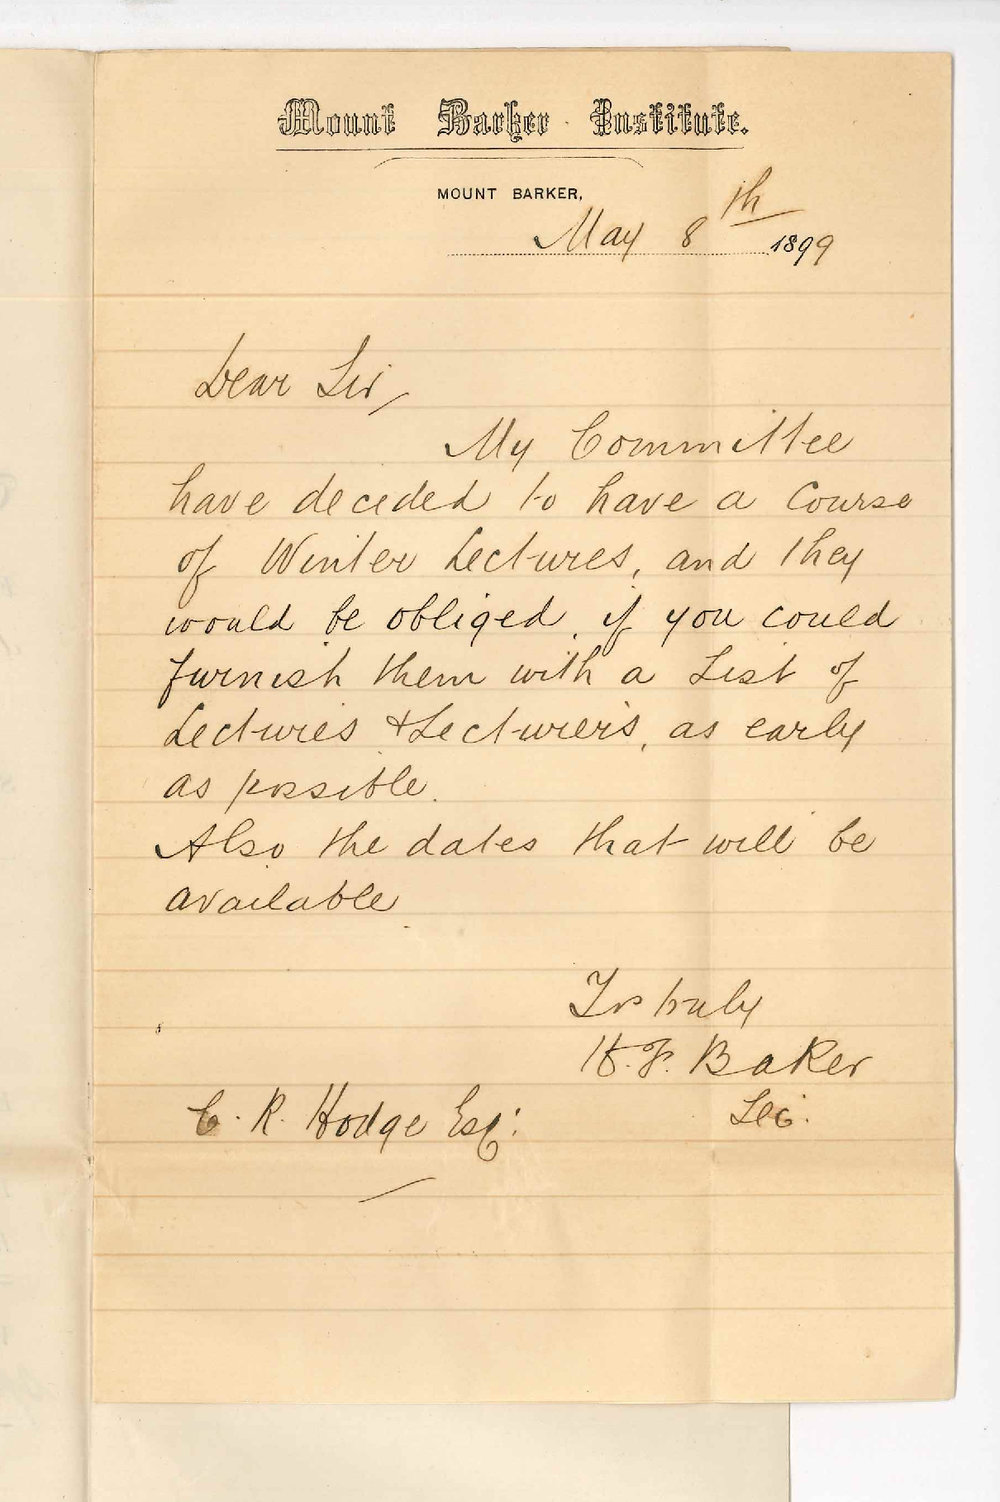 Mount Barker Institute.
MOUNT BARKER,
May 8th 1899
Dear Sir,
My Committee
have decided to have a Course
of Winter Lectures, and they
would be obliged, if you could
furnish them with a List of
Lectures & Lecturers, as early
as possible.
Also the dates that will be
available.
Yrs truly
H. F. Baker
Sec.
C. R. Hodge Esq: